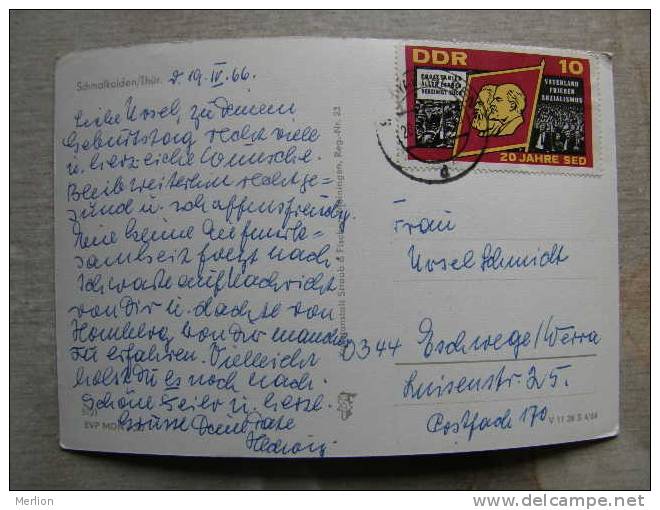 Schmalkalden/Thür.
d 19. IV. 66.
Liebe Ursel, zu Deinem
Geburtstag recht viele
u. herzliche Wünsche.
Bleib weiterhin recht ge-
sund u. schaffensfreudig.
Eine kleine Aufmerk-
samkeit folgt nach.
Ich warte auf Nachricht
von Dir u. dachte von
Homberg von Dir manches
zu erfahren. Vielleicht
holst Du es noch nach.
Schöne Feier u. herzl.
Grüsse Deine Pate
Hedwig
EVP MDN
Straub & Fischer Meiningen, Reg.-Nr. 23
DDR 10
PROLETARIER
ALLER LÄNDER
VEREINIGT EUCH
VATERLAND
FRIEDEN
SOZIALISMUS
20 JAHRE SED
d
Frau
Ursel Schmidt
D344 Eschwege/Werra
Luisenstr. 25.
Postfach 170
V 11 28 S 4/64
Merlion
delcampe.net